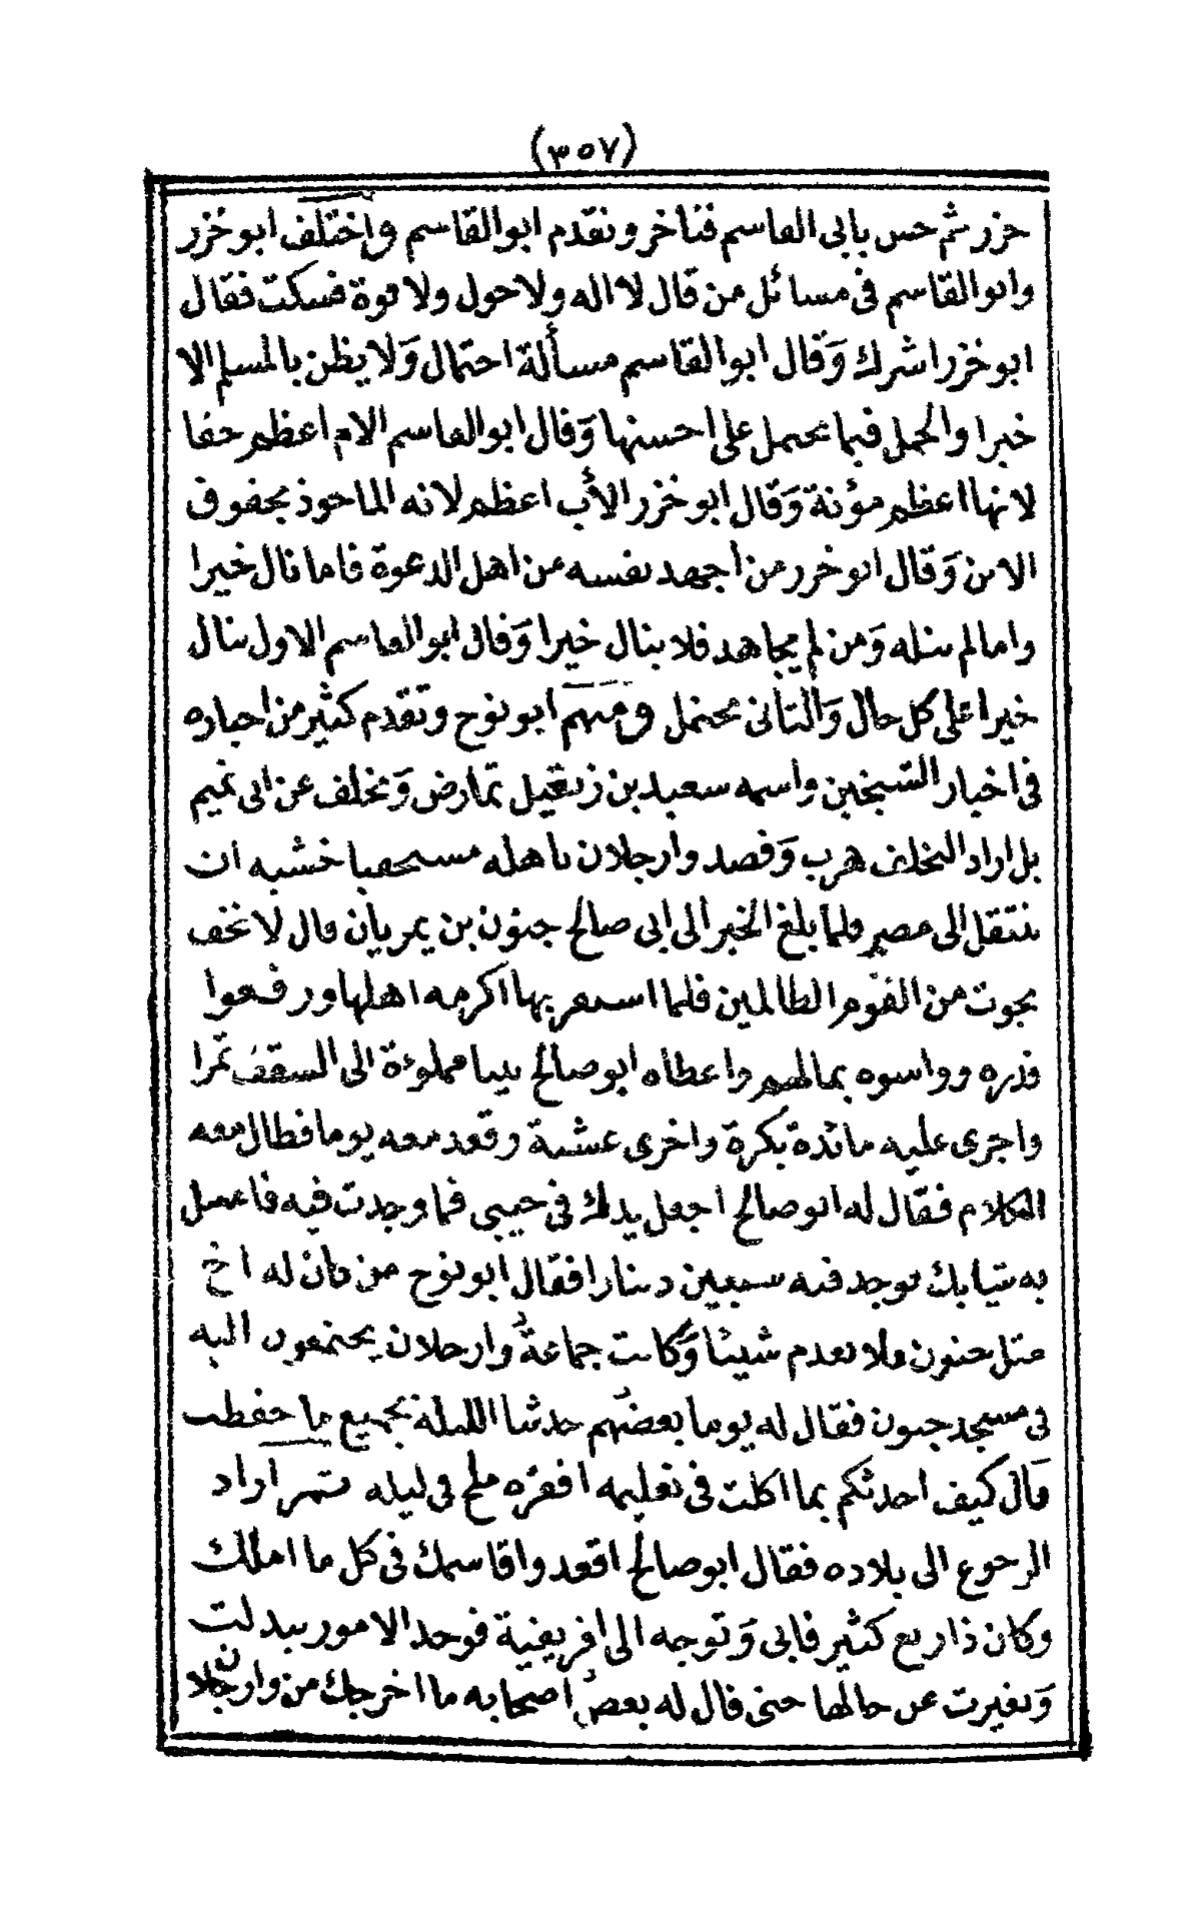 (٣٥٧)
خزر ثم حس بابى القاسم فتأخر وتقدم ابو القاسم واختلف ابو خزر
وابو القاسم فى مسائل من قال لا اله ولا حول ولا قوة فسكت فقال
ابو خزر اشرك وقال ابو القاسم مسألة احتمال ولا يظن بالمسلم الا
خيرا والحمل فيما يحتمل على احسنها وقال ابو القاسم الام اعظم حقا
لانها اعظم مؤنة وقال ابو خزر الأب اعظم لانه الماخوذ بحقوق
الابن وقال ابو خزر من اجهد نفسه من اهل الدعوة فاما نال خيرا
واما لم ينله ومن لم يجاهد فلا ينال خيرا وقال ابو القاسم الاول ينال
خيرا على كل حال والثانى محتمل ومنهم ابو نوح وتقدم كثير من اخباره
فى اخبار الشيخين واسمه سعيد بن زنغيل تمارض وتخلف عن ابى تميم
بل اراد التخلف هرب وقصد وارجلان باهله مستخفيا خشية ان
ينتقل الى مصر فلما بلغ الخبر الى ابى صالح جنون بن يمريان قال لا تخف
نجوت من القوم الظالمين فلما استقر بها اكرمه اهلها ورفعوا
قدره وواسوه بمالهم واعطاه ابو صالح بيتا مملوءة الى السقف تمرا
واجرى عليه مائدة بكرة واخرى عشية وقعد معه يوما فطال معه
الكلام فقال له ابو صالح اجعل يدك فى جيبى فما وجدت فيه فاغسل
به ثيابك فوجد فيه سبعين دينارا فقال ابو نوح من كان له اخ
مثل جنون فلا يعدم شيئا وكانت جماعة وارجلان يجتمعون اليه
فى مسجد جنون فقال له يوما بعضهم حدثنا الليلة بجميع ما حفظت
قال كيف احدثكم بما اكلت فى تعليمه اقفزه ملح فى ليله ثم اراد
الرجوع الى بلاده فقال ابو صالح اقعد واقاسمك فى كل ما املك
وكان ذا ريع كثير فابى وتوجه الى افريقية فوجد الامور تبدلت
وتغيرت عن حالها حتى قال له بعض اصحابه ما اخرجك من وارجلان